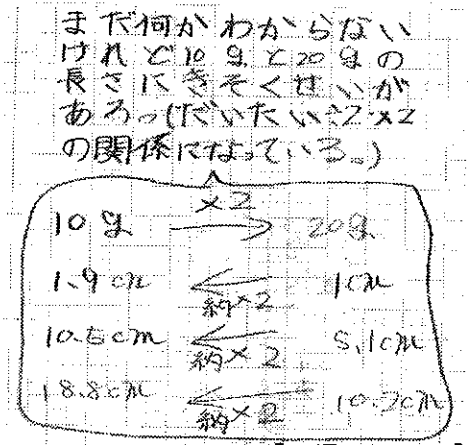 まだ何かわからない
けれど10gと20gの
長さにきそくせいが
あろっ(だいたい÷2 ×2
の関係になっている。)
×2
10g → 20g
1.9cm ← 1cm
約×2
10.5cm ← 5.1cm
約×2
18.8cm ← 10.2cm
約×2